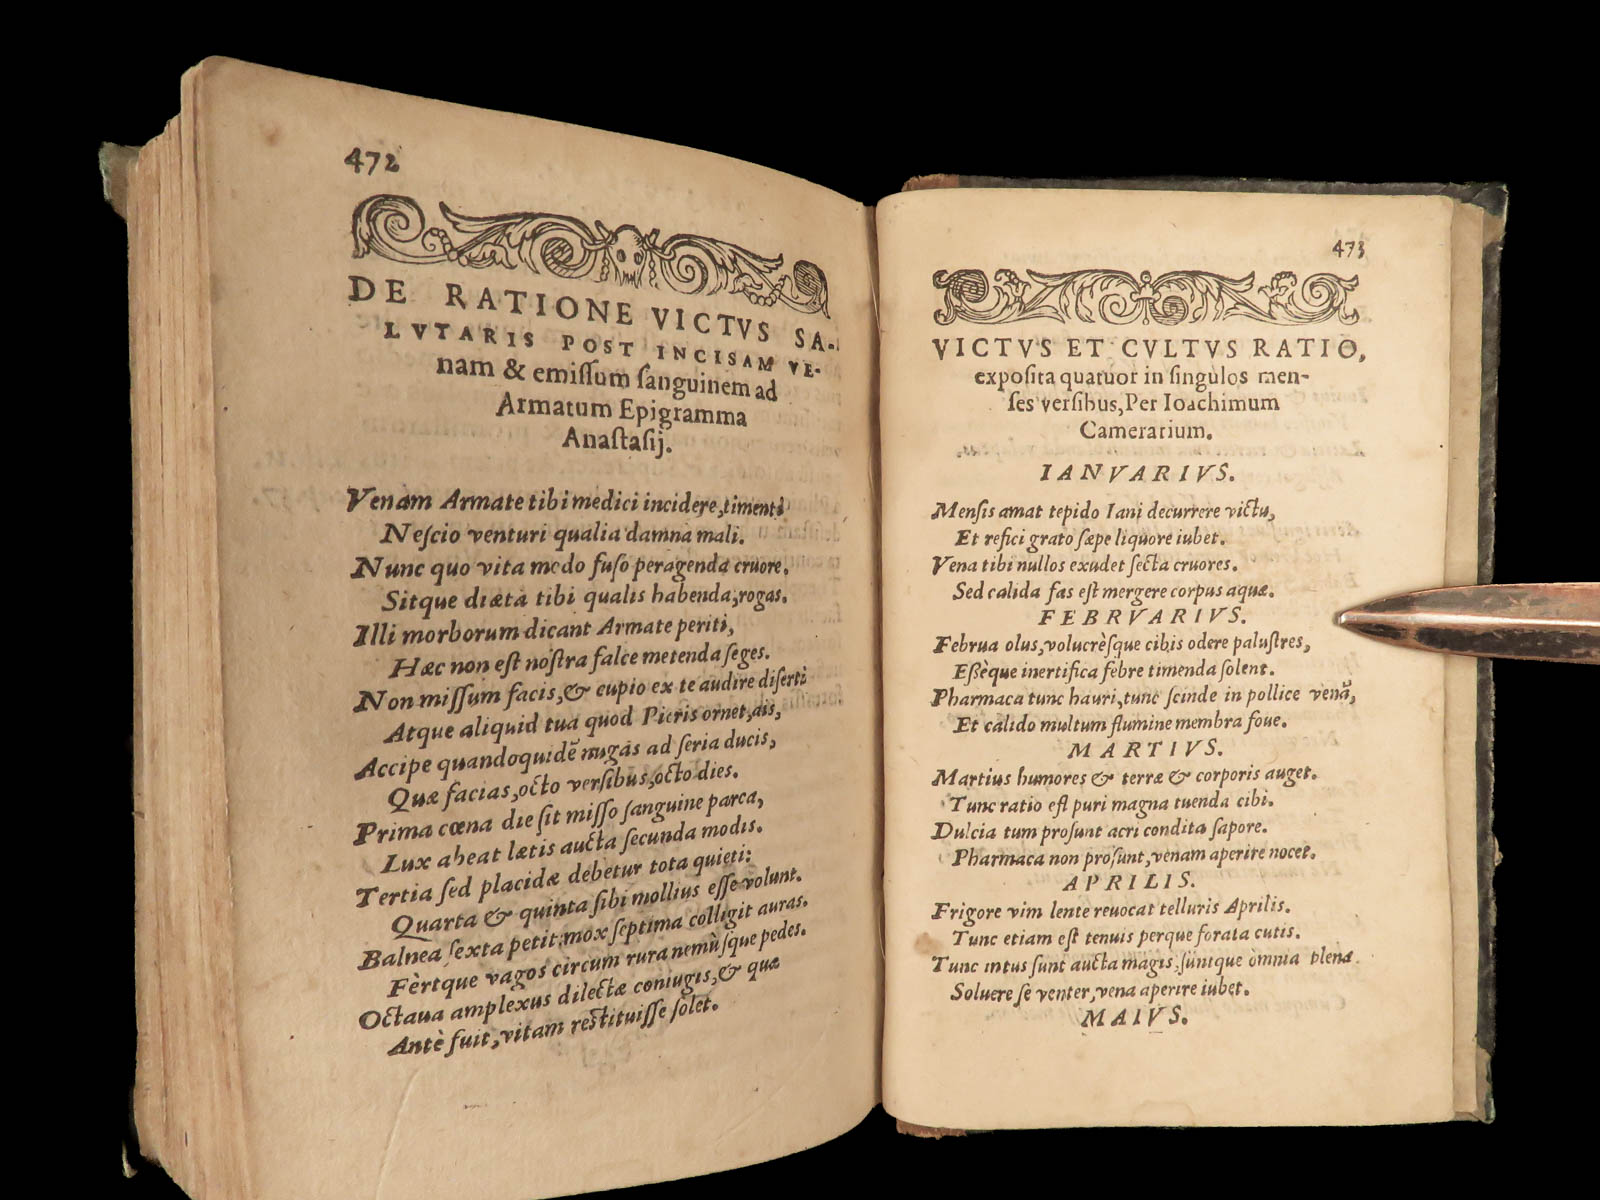 472
DE RATIONE VICTVS SA-
LVTARIS POST INCISAM VE-
nam & emiſſum ſanguinem ad
Armatum Epigramma
Anaſtaſij.
Venam Armate tibi medici incidere, timenti
Neſcio venturi qualia damna mali.
Nunc quo vita modo fuſo peragenda cruore,
Sitque diæta tibi qualis habenda, rogas.
Illi morborum dicant Armate periti,
Hæc non eſt noſtra falce metenda ſeges.
Non miſſum facis, & cupio ex te audire diſerti
Atque aliquid tua quod Pieris ornet, ais,
Accipe quandoquidē nugas ad ſeria ducis,
Quæ facias, octo verſibus, octo dies.
Prima cœna die ſit miſſo ſanguine parca,
Lux abeat lætis aucta ſecunda modis.
Tertia ſed placidæ debetur tota quieti:
Quarta & quinta ſibi mollius eſſe volunt.
Balnea ſexta petit: mox ſeptima colligit auras.
Fèrtque vagos circum rura nemùſque pedes.
Octaua amplexus dilectæ coniugis, & quæ
Antè fuit, vitam reſtituiſſe ſolet.
473
VICTVS ET CVLTVS RATIO,
expoſita quatuor in ſingulos men-
ſes verſibus, Per Ioachimum
Camerarium.
IANVARIVS.
Menſis amat tepido Iani decurrere victu,
Et refici grato ſæpe liquore iubet.
Vena tibi nullos exudet ſecta cruores.
Sed calida fas eſt mergere corpus aquæ.
FEBRVARIVS.
Februa olus, volucrèſque cibis odere paluſtres,
Eſſèque inertifica febre timenda ſolent.
Pharmaca tunc hauri, tunc ſcinde in pollice venā,
Et calido multum flumine membra foue.
MARTIVS.
Martius humores & terræ & corporis auget.
Tunc ratio eſt puri magna tuenda cibi.
Dulcia tum proſunt acri condita ſapore.
Pharmaca non proſunt, venam aperire nocet.
APRILIS.
Frigore vim lente reuocat telluris Aprilis.
Tunc etiam eſt tenuis perque forata cutis.
Tunc intus ſunt aucta magis: ſuntque òmnia plena.
Soluere ſe venter, vena aperire iubet.
MAIVS.